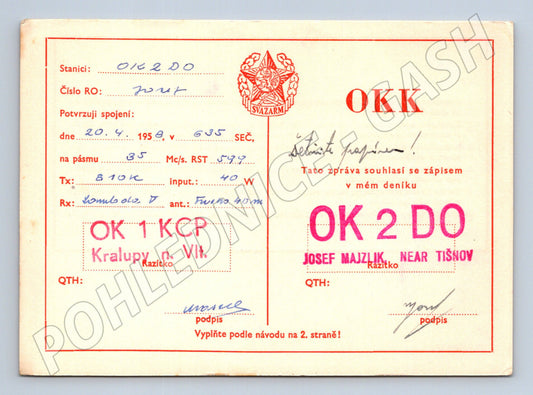 Stanici: OK2DO
Číslo RO: Josef
Potvrzuji spojení:
dne 20.4. 1958, v 635 SEČ,
na pásmu 35 Mc/s. RST 599
Tx: B10K input.: 40 W
Rx: ant.: 40m
OK 1 KCP
Kralupy n. Vlt.
Razítko
QTH:
podpis
SVAZARM
OKK
Šetřete papírem!
Tato zpráva souhlasí se zápisem
v mém deníku
OK 2 DO
JOSEF MAJZLIK, NEAR TIŠNOV
Razítko
QTH:
podpis
Vyplňte podle návodu na 2. straně!
POHLEDNICE-GASH